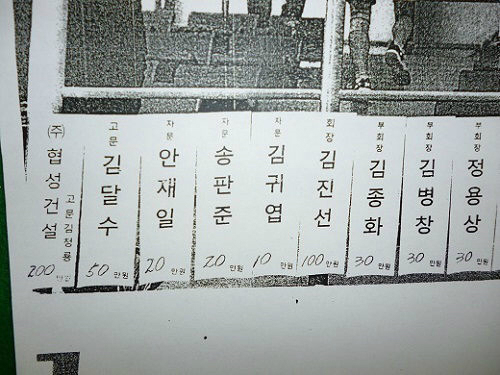 (주)협성건설
고문김정룡
200 만원
고문
김달수
50 만원
자문
안재일
20 만원
자문
송판준
20 만원
자문
김귀엽
10 만원
회장
김진선
100 만원
부회장
김종화
30 만원
부회장
김병창
30 만원
부회장
정용상
30 만원